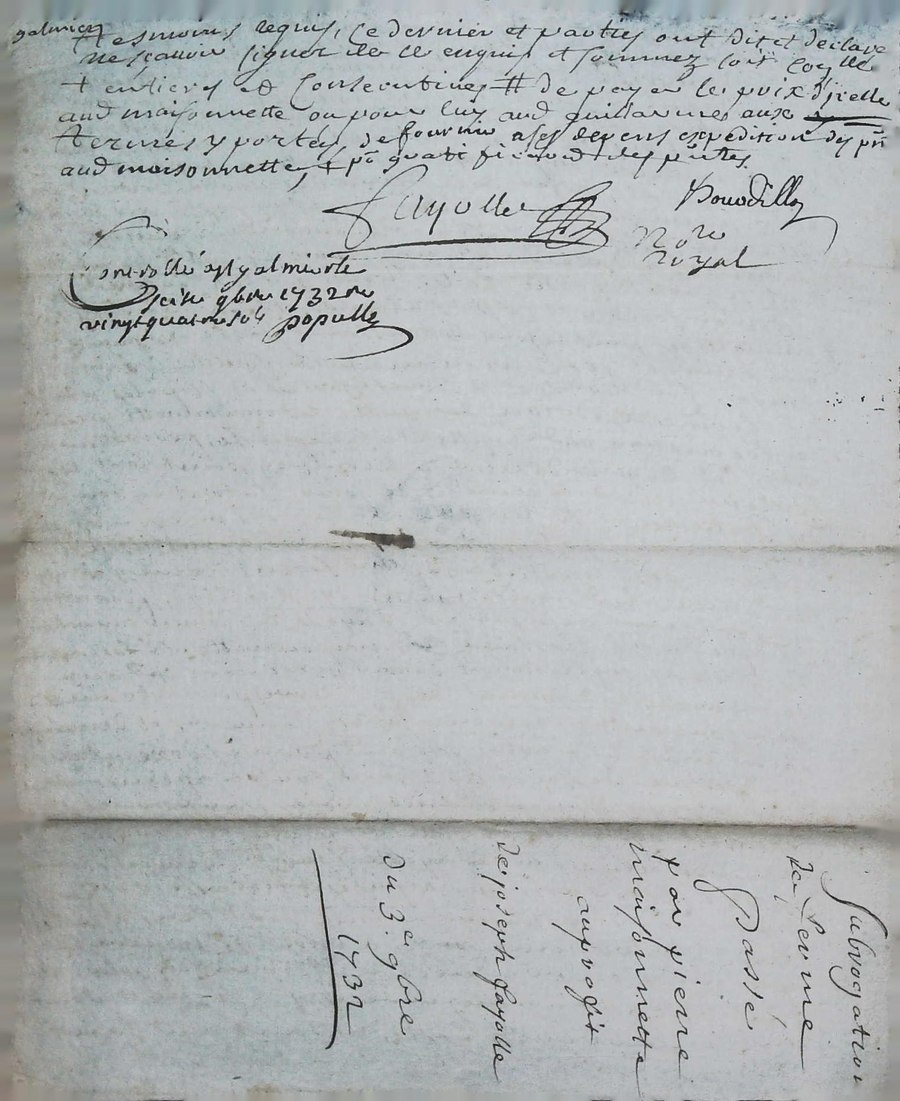 galmier
tesmoins requis, ce dernier et parties ont dit et déclaré
ne scavoir signer de ce enquis et sommez soit
+ entieres et consecutives # de payer le prix d'icelle
aud maisonnette ou pour luy aud guillaume aux
termes y portés, de fournir a ses depens expedition des pñtes
aud maisonnette, + des pñtes
fayolle
nore
royal
Controllé a st galmier le
seize 9bre 1732 Re
vingt quatre sols populle
Subrogation
de ferme
Passé
par pierre
maisonnette
au profit
de joseph fayolle
du 3e 9bre
1732